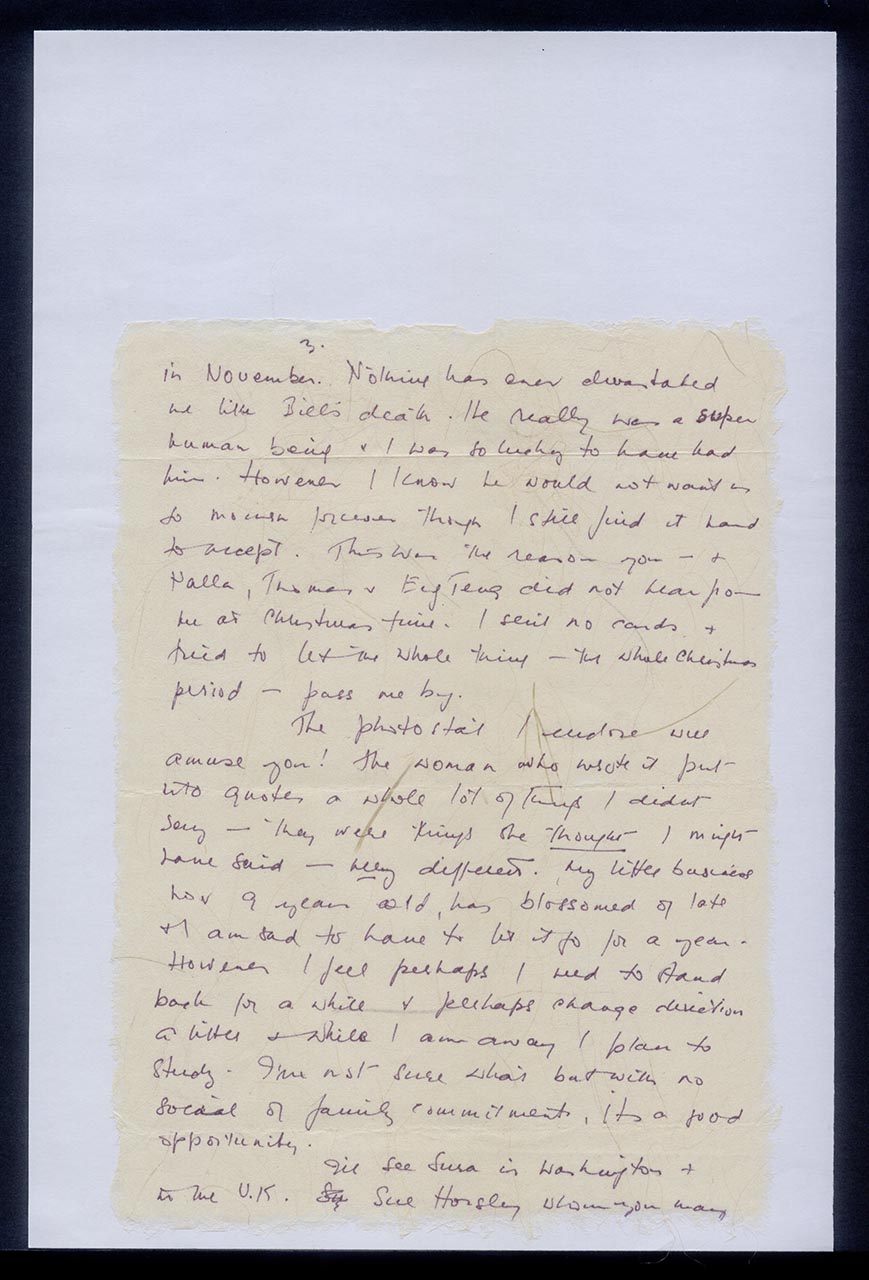 3.
in November. Nothing has ever devastated
me like Bill's death. He really was a super
human being & I was so lucky to have had
him. However I know he would not want us
to mourn forever though I still find it hard
to accept. This was the reason you — &
Nalla, Thomas & Eng Teng did not hear from
me at Christmas time. I sent no cards &
tried to let the whole thing — the whole Christmas
period — pass me by.
The photostat I enclose will
amuse you! The woman who wrote it put
into quotes a whole lot of things I didnt
say — They were things she thought I might
have said — very different. My little business
now 9 years old, has blossomed of late
& I am sad to have to let it go for a year.
However I feel perhaps I need to stand
back for a while & perhaps change direction
a little & while I am away I plan to
study. I'm not sure what but with no
social or family commitments, its a good
opportunity.
I'll see Susa in Washington &
in the U.K. Sue Horsley whom you may